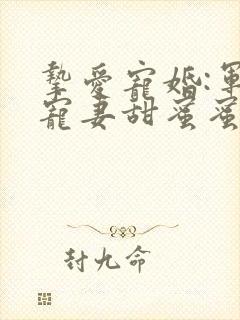 摯愛寵婚:軍
寵妻甜蜜蜜
封九命